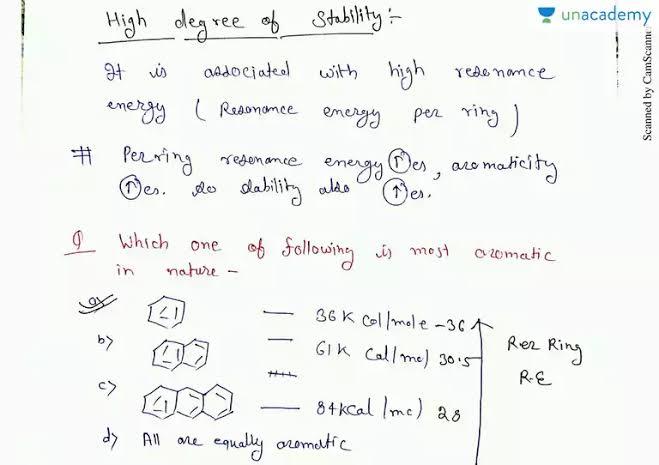 High degree of Stability :-
unacademy
It is associated with high resonance
energy ( Resonance energy per ring )
# Per ring resonance energy ↑es, aromaticity
↑es. so stability also ↑es.
Q Which one of following is most aromatic
in nature -
a) — 36 K Cal/mole - 36
b) — 61 K Cal/mol 30.5
c) — 84 kCal/mol 28
Per Ring
R.E
d) All are equally aromatic
Scanned by CamScanner